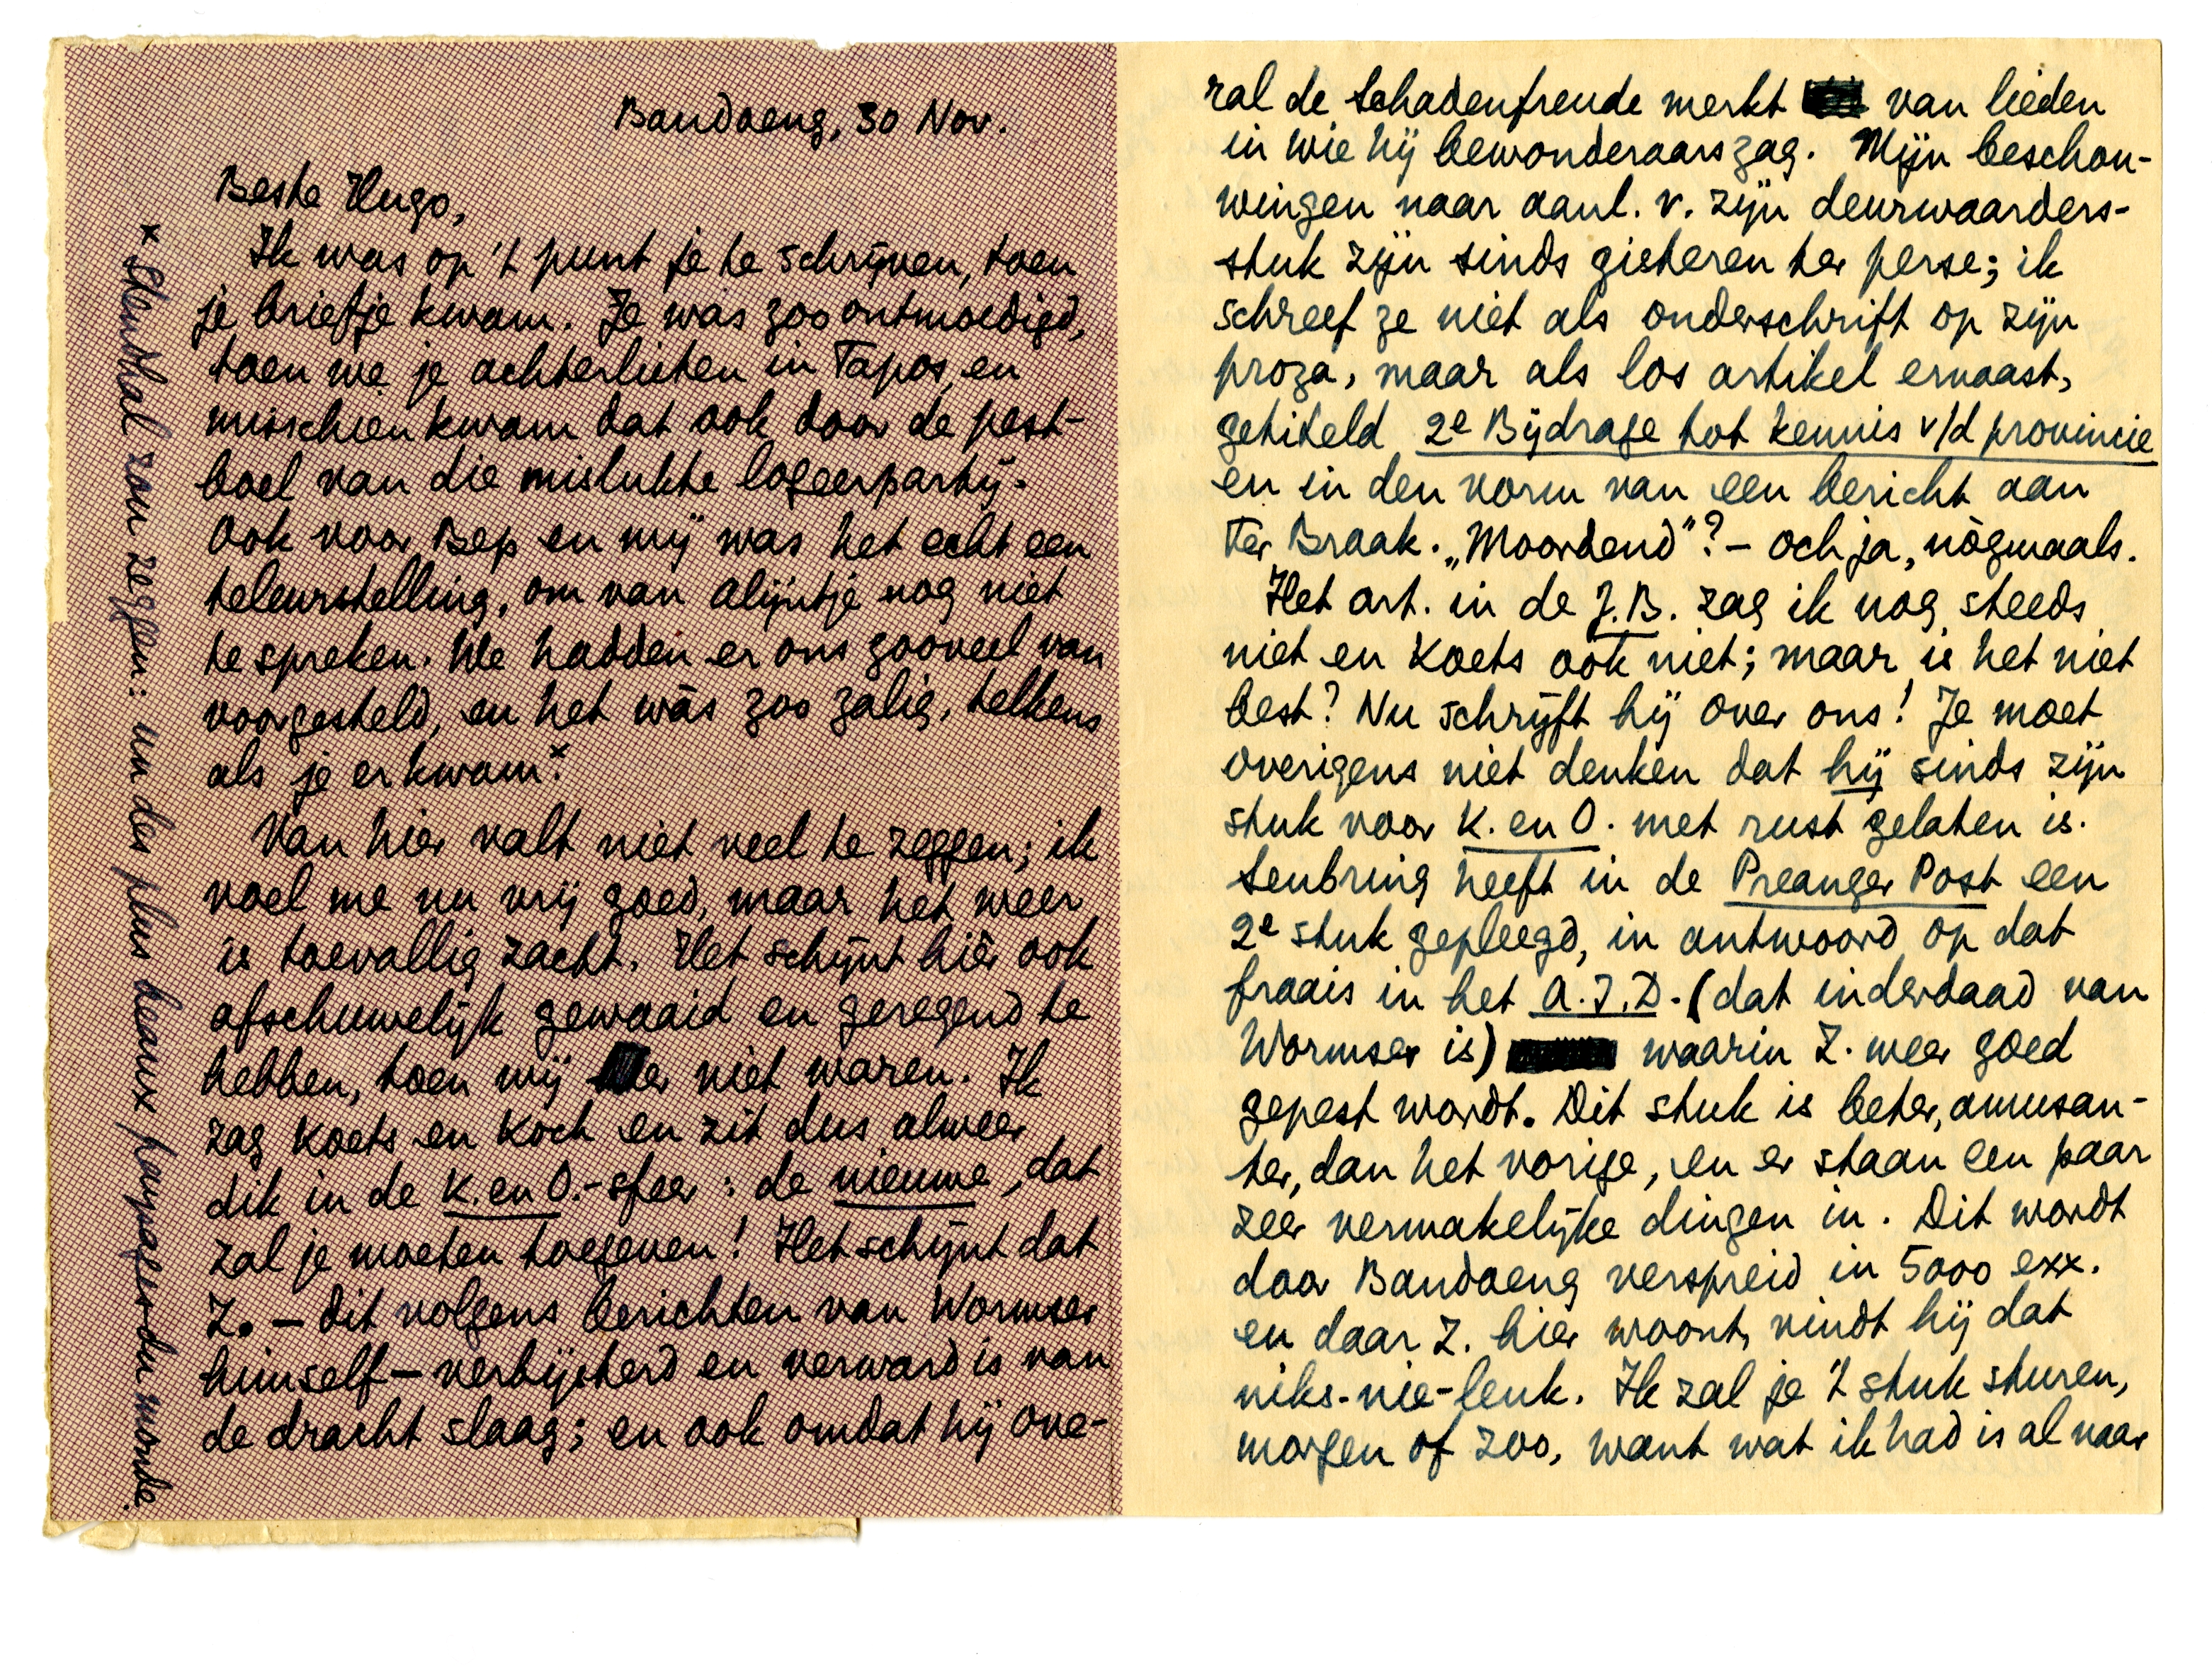 Bandoeng, 30 Nov.
Beste Hugo,
Ik was op 't punt je te schrijven, toen
je briefje kwam. Je was zoo ontmoedigd,
toen we je achterlieten in Tapos, en
misschien kwam dat ook door de pest-
boel van die mislukte logeerpartij.
Ook voor Bep en mij was het echt een
teleurstelling, om van Alijntje nog niet
te spreken. We hadden er ons zooveel van
voorgesteld, en het wàs zoo zalig, telkens
als je er kwam.×
Van hier valt niet veel te zeggen; ik
voel me nu vrij goed, maar het weer
is toevallig zacht. Het schijnt hier ook
afschuwelijk gewaaid en geregend te
hebben, toen wij er niet waren. Ik
zag Koets en Koch en zit dus alweer
dik in de K. en O.-sfeer: de nieuwe, dat
zal je moeten toegeven! Het schijnt dat
Z. — dit volgens berichten van Wormser
himself — verbijsterd en verward is van
de dracht slaag; en ook omdat hij ove-
× Stendhal zou zeggen: un des plus beaux paysages du monde.
ral de Schadenfreude merkt van lieden
in wie hij bewonderaars zag. Mijn beschou-
wingen naar aanl. v. zijn deurwaarders-
stuk zijn sinds gisteren ter perse; ik
schreef ze niet als onderschrift op zijn
proza, maar als los artikel ernaast,
getiteld 2e Bijdrage tot kennis v/d provincie
en in den vorm van een bericht aan
Ter Braak. „Moordend"? — och ja, nògmaals.
Het art. in de J.B. zag ik nog steeds
niet en Koets ook niet; maar is het niet
best? Nu schrijft hij over ons! Je moet
overigens niet denken dat hij sinds zijn
stuk voor K. en O. met rust gelaten is.
Senbring heeft in de Preanger Post een
2e stuk gepleegd, in antwoord op dat
fraais in het A.I.D. (dat inderdaad van
Wormser is) waarin Z. weer goed
gepest wordt. Dit stuk is beter, amusan-
ter, dan het vorige, en er staan een paar
zeer vermakelijke dingen in. Dit wordt
door Bandoeng verspreid in 5000 exx.
en daar Z. hier woont, vindt hij dat
niks-nie-leuk. Ik zal je 't stuk sturen,
morgen of zoo, want wat ik had is al naar